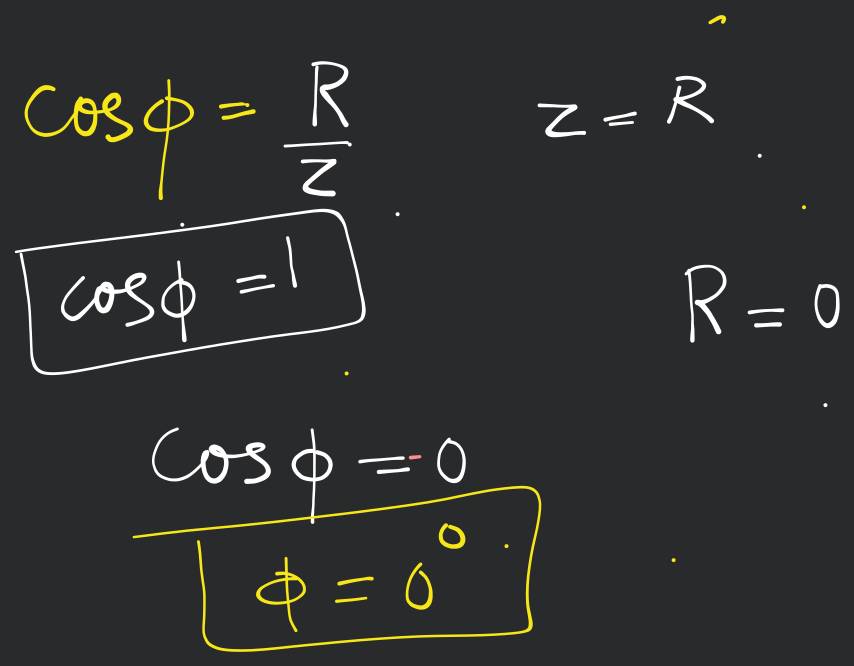 cosϕ = R/Z
Z = R
cosϕ = 1
R = 0
cosϕ = 0
ϕ = 0°